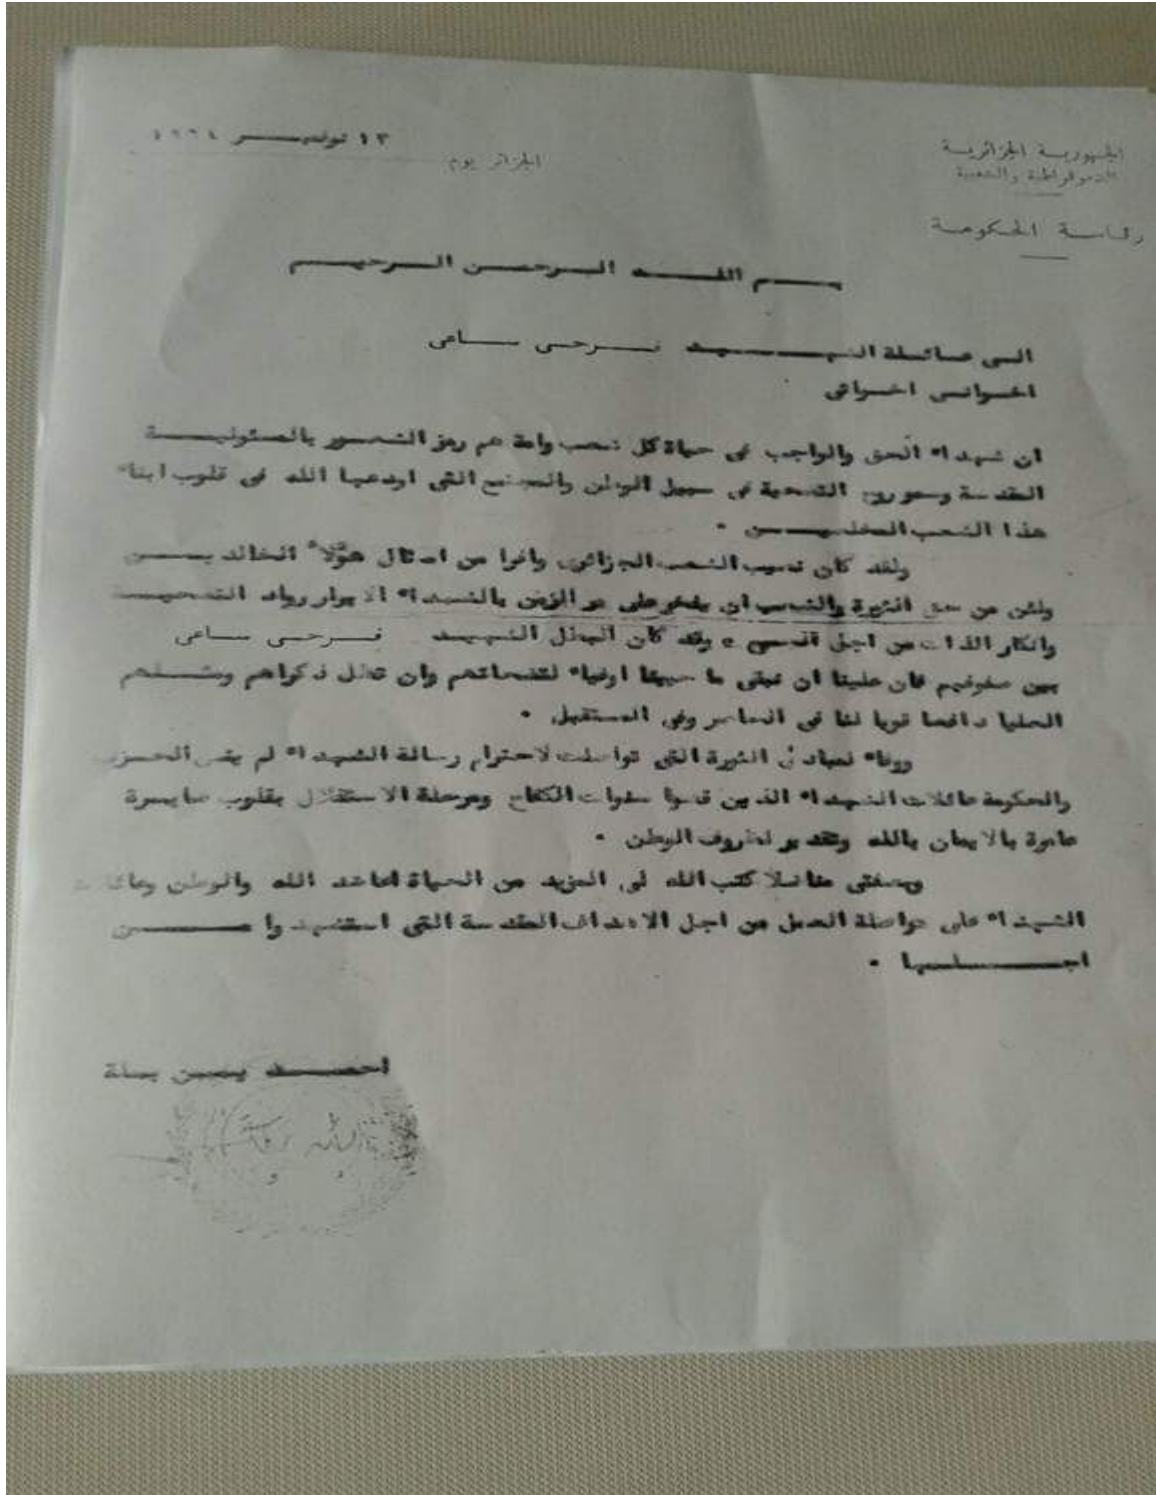 الجمهورية الجزائرية
الديموقراطية والشعبية
رئاسة الحكومة
الجزائر يوم ١٣ نوفمبر
بسم الله الرحمن الرحيم
الى عائلة الشهيد فرحى ساعى
اخوانى اخواتى
ان شهداء الحق والواجب فى حياة كل شعب وامة هم رمز الشعور بالمسئولية
المقدسة وسمو روح التضحية فى سبيل الوطن والمجتمع التى اودعها الله فى قلوب ابناء
هذا الشعب المخلصين .
ولقد كان نصيب الشعب الجزائرى وافرا من امثال هؤلاء الخالدين
ولئن من حق الثورة والشعب ان يفخر على مر الزمن بالشهداء الابرار رواد التضحية
وانكار الذات من اجل وقد كان البطل الشهيد فرحى ساعى
بين صفوفهم فان علينا ان نبقى ما حيينا اوفياء لتضحياتهم وان تظل ذكراهم ومثلهم
العليا دافعا قويا لنا فى الحاضر وفى المستقبل .
ووفاء لمبادئ الثورة التى تواصلت لاحترام رسالة الشهداء لم ينس الحزب
والحكومة عائلات الشهداء الذين قاسوا سنوات الكفاح ومرحلة الاستقلال بقلوب صابرة
عامرة بالايمان بالله وتقدير لظروف الوطن .
وبصفتى مناضلا كتب الله لى المزيد من الحياة اعاهد الله والوطن وعائلات
الشهداء على مواصلة العمل من اجل الاهداف المقدسة التى استشهدوا من
اجلها .
احمد بن بلة